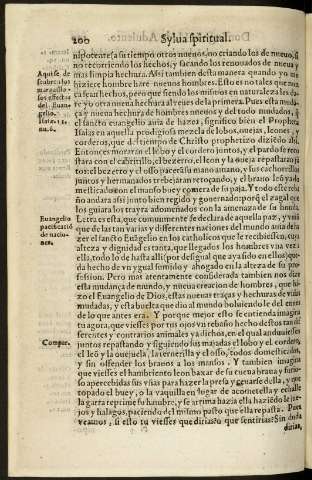 200 Sylua spiritual.
nipotente(a su tiempo otros nueuos, no criando los de nueuo, si
no recorriendo los hechos, y sacando los renouados de nueua y
mas limpia hechura. Assi tambien desta manera quando yo me
hiziere hombre haré nueuos hombres. Esto es no tales que nun
ca sean hechos, pero que siendo los mismos en naturaleza les da-
re yo otra nueua hechura al reues de la primera. Pues esta muda-
ça y nueua hechura de hombres nueuos y del todo mudados, q̃
el sancto euangelio auia de hazer, significo bien el Propheta
Isaias en aquella prodigiosa mezcla de lobos, ouejas, leones, y
corderos, que del tiempo de Christo prophetizo diziẽdo assi.
Entonces moraran el lobo y el cordero juntos, y el pardo se reco
stara con el cabritillo, el bezerro, el leon y la oueja repastarã jũ
tos: el bezerro y el osso paceran
juntos y hermanados trebejaran retoçando, y el brauo leõ ya do
mesticado con el manso buey comera de su paja. Y todo este reba
ño andara assi junto bien regido y gouernado; porq̃ el zagal que
los guiara los trayra adormidos con la amenaza de su honda.
Letra es esta, que comunmente se declara de aquella paz, y vniõ
que de las tan varias y differentes naciones del mundo auia de ha
zer el sancto Euangelio en los catholicos que le recibiessen, cuya
alteza y dignidad es tanta, que llegados los hombres vna vez a
ella, todo lo de hasta alli (por desigual que aya sido en ellos) que-
da hecho de vn ygual sumido y ahogado en la alteza de su pro-
fession. Pero mas atentamente considerada tambien nos dize
esta mudança de mundo, y nueua creacion de hombres, que hi-
zo el Euangelio de Dios, estas nueuas traças y hechuras de vidas
mudadas, y esta buelta que dio al mundo boluiendole del enues
de lo que antes era. Y porque mejor esto se entienda imagina
tu agora, que viesses por tus ojos vn rebaño hecho destos tan dif-
ferentes y contrarios animales ya dichos, en el qual anduuiessen
juntos repastando y siguiendo sus majadas el lobo y el cordero,
el leõ y la ouejuela, la ternerilla y el osso, todos domesticados,
y sin offender los brauos a los mansos. Y tambien imagina
que viesses el hambriento leon baxar de su cueua braua y furio-
so apercebidas sus vñas para hazer la presa y ceuarse della, y que
topado el buey, o la vaquilla en lugar de acometella y echalle
la garra reprime su hambre, y se arrima hazia ella haziẽdo le fie-
stos y halagos, paciendo del mismo pasto que ella repasta. Pues
veamos, si esto tu viesses que dirias? que sentirias? Sin duda
dirias,
Euangelio
pacificació
de nacio-
nes.
Compar.